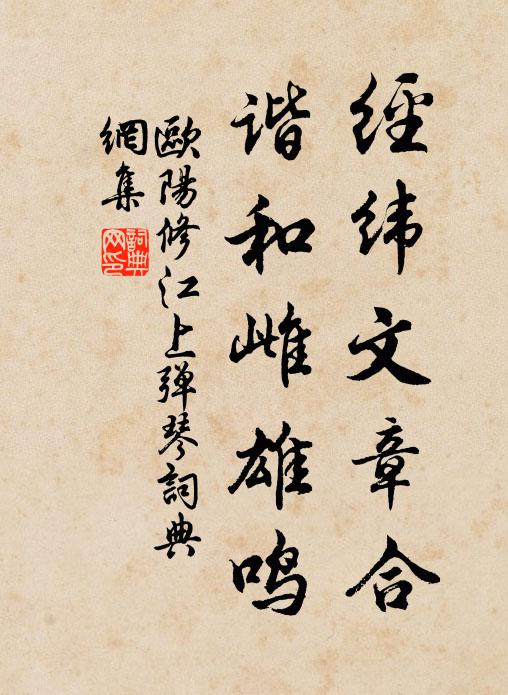 經纬文章合
谐和雌雄鸣
歐陽修江上弹琴詞典
網集
詞典
网印